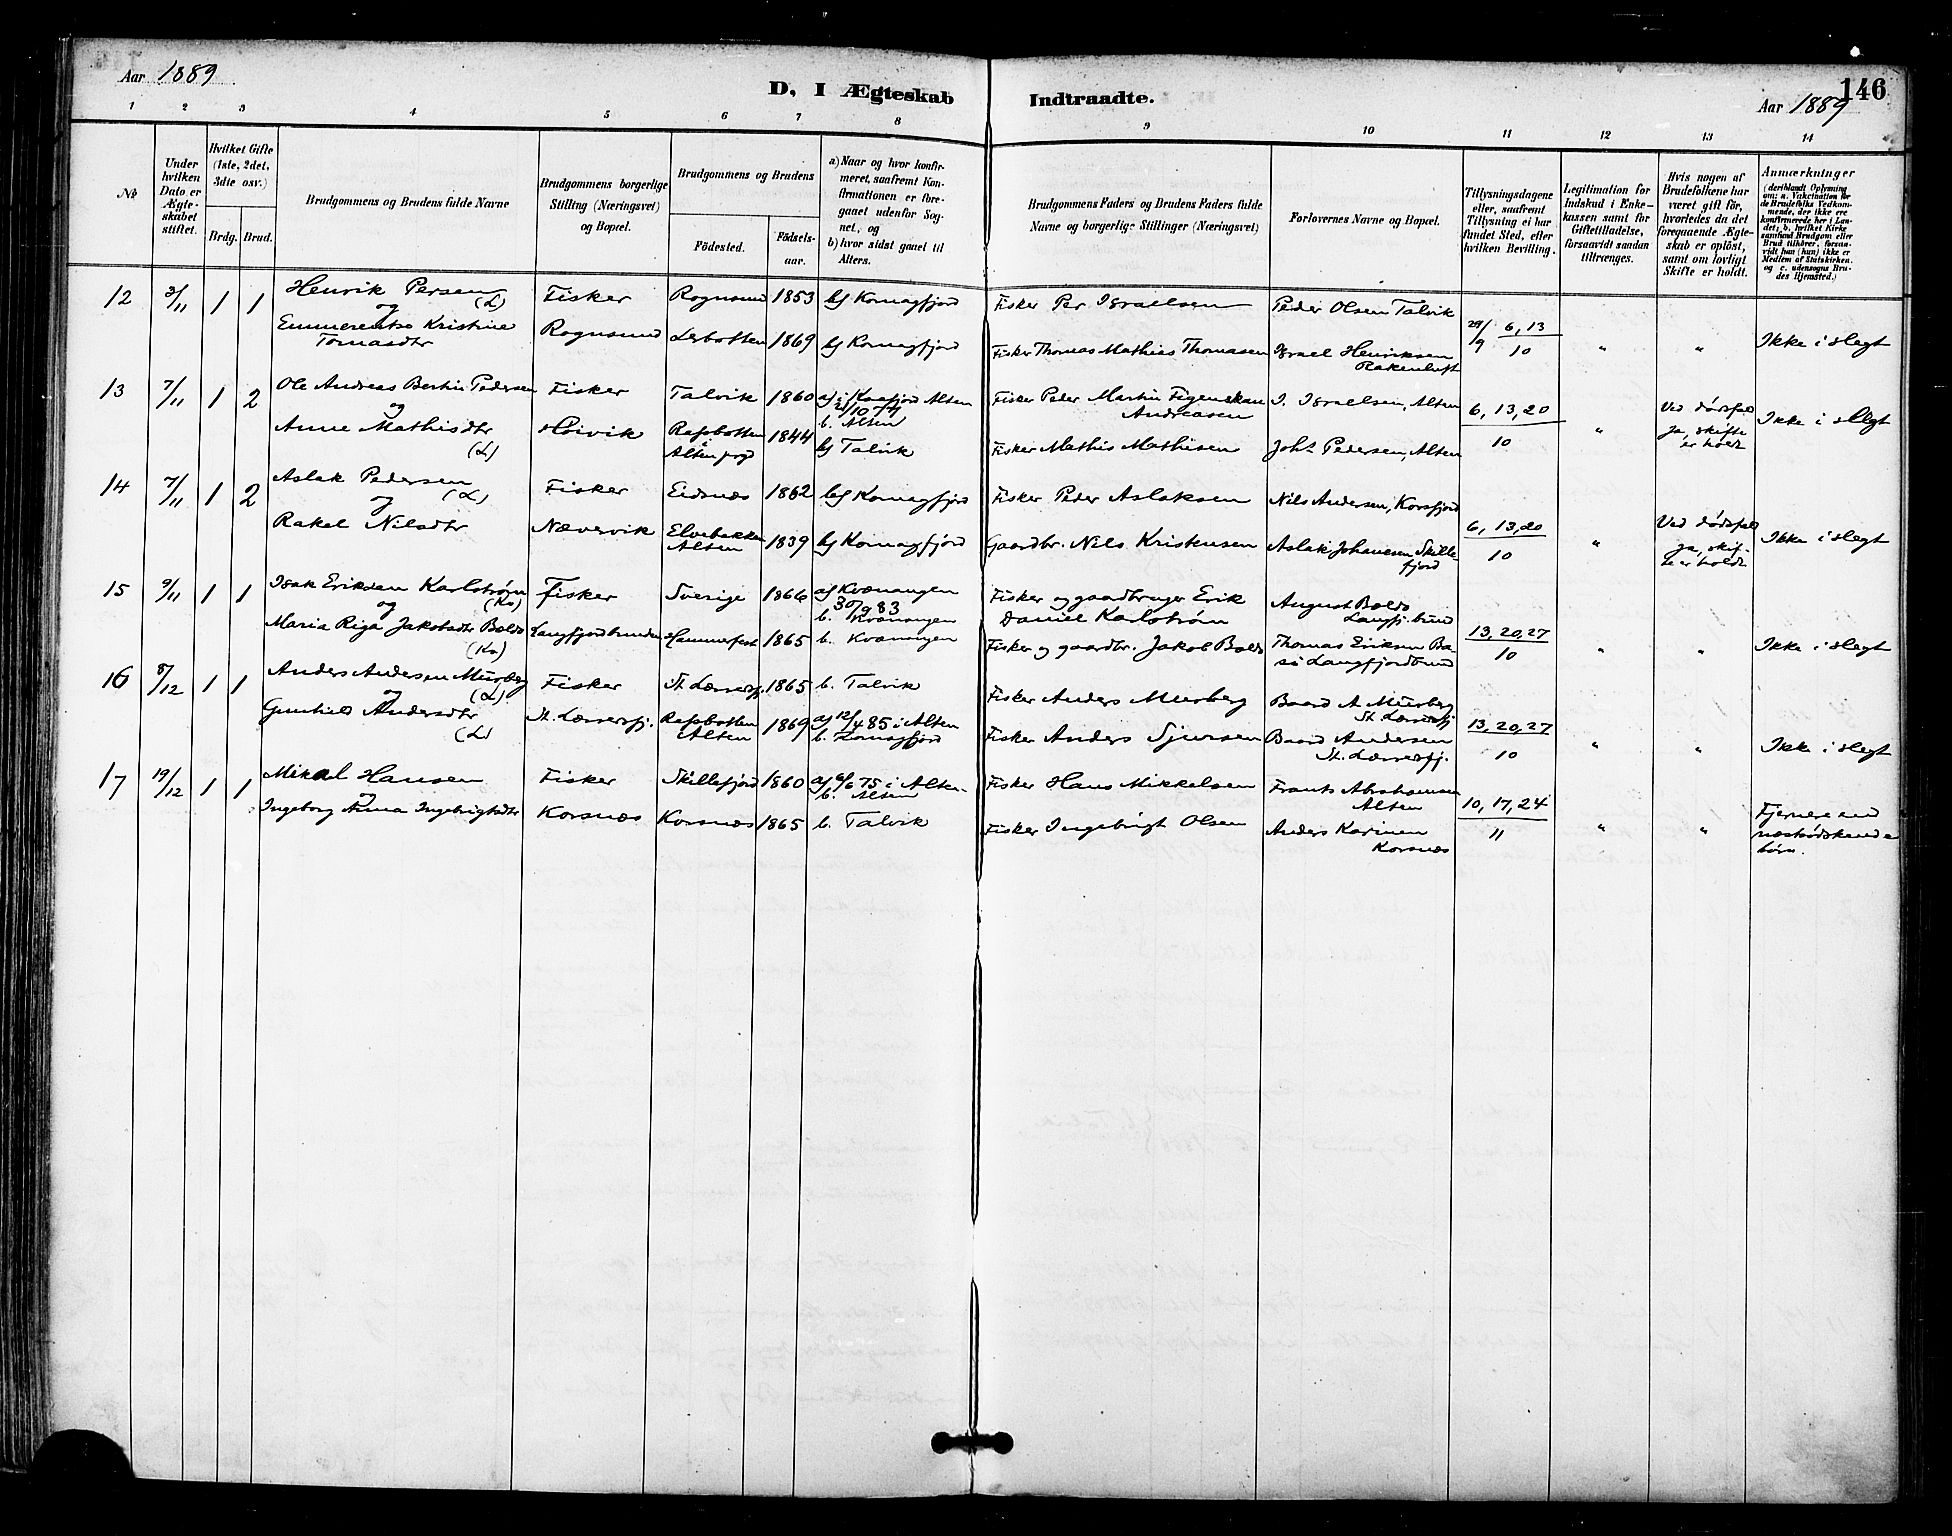 Aar 1889
D. I Ægteskab Indtraadte.
146
Aar 1889
1 2 3 4 5 6 7 8 9 10 11 12 13 14
№
Under hvilken Dato er Ægteskabet stiftet.
Hvilket Gifte (1ste, 2det, 3die osv.)
Brdg. Brud.
Brudgommens og Brudens fulde Navne
Brudgommens borgerlige Stilling (Næringsvei) og Bopæl.
Brudgommens og Brudens
Fødested.
Fødselsaar.
a) Naar og hvor konfirmeret, saafremt Konfirmationen er foregaaet udenfor Sognet, og
b) hvor sidst gaaet til Alters.
Brudgommens Faders og Brudens Faders fulde Navne og borgerlige Stillinger (Næringsvei)
Forlovernes Navne og Bopæl.
Tillysningsdagene eller, saafremt Tillysning ei har fundet Sted, efter hvilken Bevilling.
Legitimation for Indskud i Enkekassen samt for Giftetilladelse, forsaavidt saadan tiltrænges.
Hvis nogen af Brudefolkene har været gift før, hvorledes da det foregaaende Ægteskab er opløst, samt om lovligt Skifte er holdt.
Anmærkninger (deriblandt Oplysning om: a. Vakcination for de Brudefolks Vedkommende, der ikke ere konfirmerede her i Landet; b. hvilket Kirkesamfund Brudgom eller Brud tilhører, forsaavidt han (hun) ikke er Medlem af Statskirken, og c. udensogns Brudes Hjemsted.)
12 3/11 1 1 Henrik Persen (L) Fisker Rognsund 1853 b) Komagfjord Fisker Per Israelsen Peder Olsen Talvik
og
Emmerentse Kristine Tomasdtr Rognsund Lerbotten 1869 b) Komagfjord Fisker Thomas Mathias Thomasen Israel Henriksen Rakenluft
29/9 6, 13/10 " " Ikke i slegt
13 7/11 1 2 Ole Andreas Bertin Pedersen Fisker Talvik 1860 a) i Kaafjord Alten
b. Alten Fisker Peder Martin Figenskau Andreasen I. Israelsen, Alten
og
Anne Mathisdtr (L) Høivik Refsbotten i Alten prgd 1844 b) Talvik Fisker Mathis Mathisen Joh. Pedersen, Alten
6, 13, 20/10 " Ved dødsfald ja, skifte er holdt Ikke i slegt
14 7/11 1 2 Aslak Pedersen (L) Fisker Eidsnæs 1862 b) Komagfjord Fisker Peder Aslaksen Nils Andersen, Korsfjord
og
Rakel Nilsdtr Nævervik Elvebakken Alten 1839 b) Komagfjord Gaardbr. Nils Kristensen Aslak Johanesen Skillefjord
6, 13, 20/10 " Ved dødsfald ja, skifte er holdt Ikke i slegt
15 9/11 1 1 Isak Eriksen Karlstrøm (Kv) Fisker Sverige 1866 a) Kvænangen 30/9 83
b. Kvænangen Fisker og gaardbruger Erik Daniel Karlstrøm August Boldo Langfj. bund
og
Maria Riga Jakobsdtr Boldo (Kv) Langfjordbunden Hammerfest 1865 b. Kvænangen Fisker og gaardbr. Jakob Boldo Thomas Eriksen Basi Langfjordbund
13, 20, 27/10 " " Ikke i slegt
16 8/12 1 1 Anders Andersen Murberg (L) Fisker St. Lerresfj. 1865 b. Talvik Fisker Anders Murberg Baard A. Murberg St. Lerresfj
og
Gunhild Andersdtr (L) St. Lerresfj. Refsbotten Alten 1869 a) 12/4 85 i Alten
b. Komagfjord Fisker Anders Sjursen Baard Andersen St. Lerresfj.
13, 20, 27/10 " " Ikke i slegt
17 19/12 1 1 Mikal Hansen Fisker Skillefjord 1860 a) 6/6 75 i Alten
b. Alten Fisker Hans Mikkelsen Frants Abrahamsen Alten
og
Ingeborg Anna Ingebrigtsdtr Korsnæs Korsnæs 1865 b. Talvik Fisker Ingebrigt Olsen Anders Karinen Korsnæs
10, 17, 24/11 " " Fjernere end næstsødskendebørn.